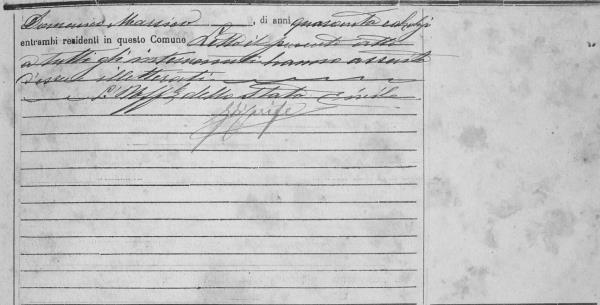 Domenico Marsico, di anni quaranta
entrambi residenti in questo Comune Letto il presente atto
a tutti gli intervenuti hanno asserito
d'essere illetterati
L'Uff. dello Stato Civile